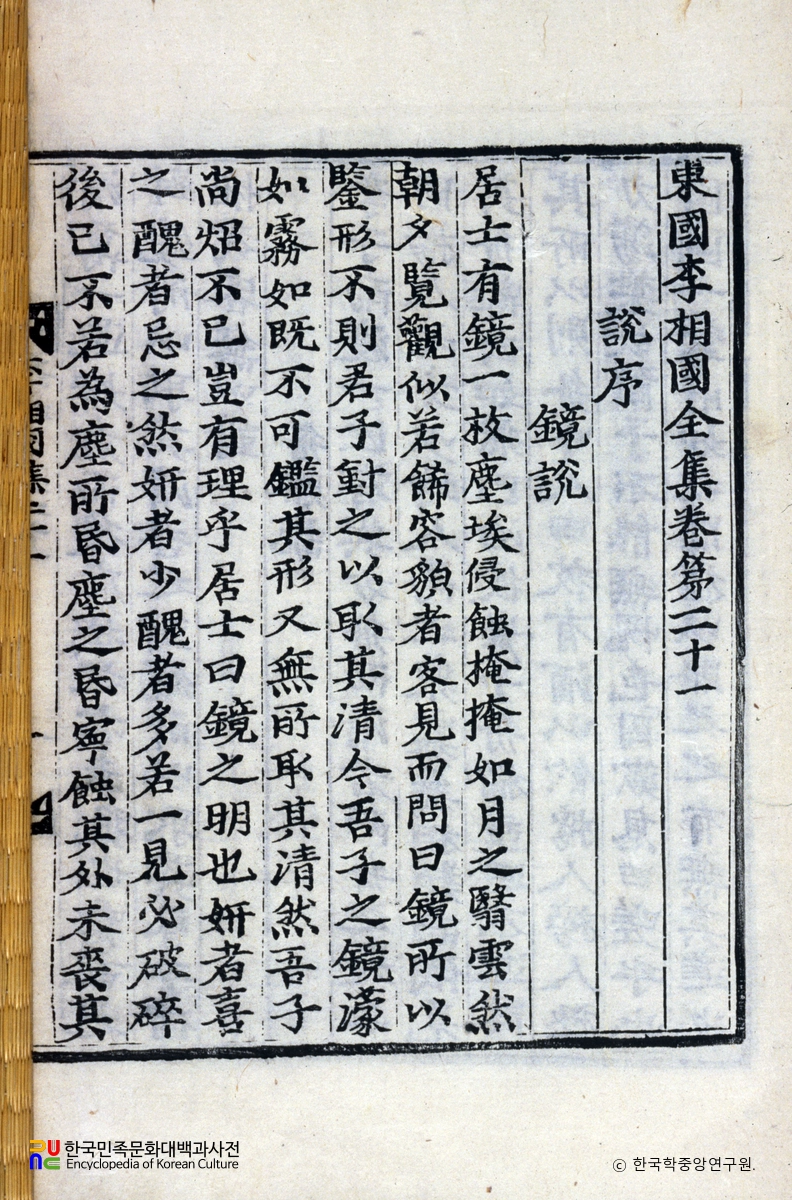 東國李相國全集卷第二十一
說序
鏡說
居士有鏡一枚塵埃侵蝕掩掩如月之翳雲然
朝夕覽觀似若飾容貌者客見而問曰鏡所以
鑒形不則君子對之以取其淸今吾子之鏡濛
如霧如旣不可鑑其形又無所取其淸然吾子
尙炤不已豈有理乎居士曰鏡之明也姸者喜
之醜者忌之然姸者少醜者多若一見必破碎
後已不若爲塵所昏塵之昏寧蝕其外未喪其
李相國集二十一
한국민족문화대백과사전
Encyclopedia of Korean Culture
ⓒ 한국학중앙연구원.